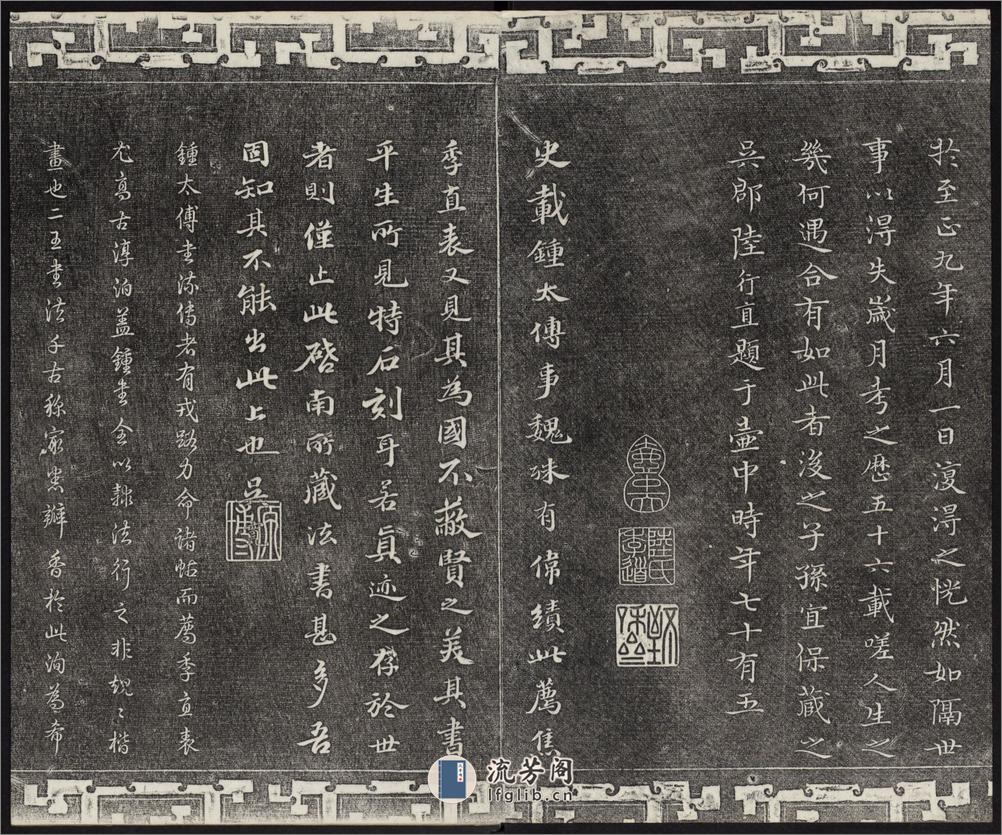 於至正九年六月一日復得之恍然如隔世
事以得失歲月考之歷五十六載嗟人生之
幾何遇合有如此者後之子孫宜保藏之
吳郡陸行直題于壺中時年七十有五
壺中天
陸氏季道
史載鍾太傅事魏殊有偉績此薦焦
季直表又見其為國不蔽賢之美其書
平生所見特石刻耳若真迹之存於世
者則僅止此啓南所藏法書甚多吾
固知其不能出此上也吳
原博
鍾太傅書流傳者有戎路力命諸帖而薦季直表
尤高古淳泊蓋鍾書全以隸法行之非規〻楷
畫也二王書法千古稱家悉瓣香於此洵為希
流芳阁
lfglib.cn